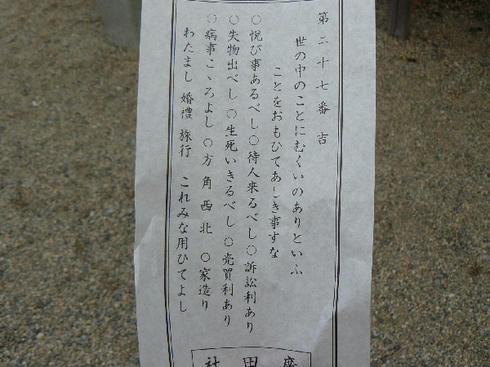 第二十七番吉
世の中のことにむくいのありといふ
ことをおもひてあしき事すな
○悦び事あるべし○待人来るべし○訴訟利あり
○失物出べし○生死いきるべし○売買利あり
○病事こゝろよし○方角西北○家造り
わたまし婚禮旅行 これみな用ひてよし
社田